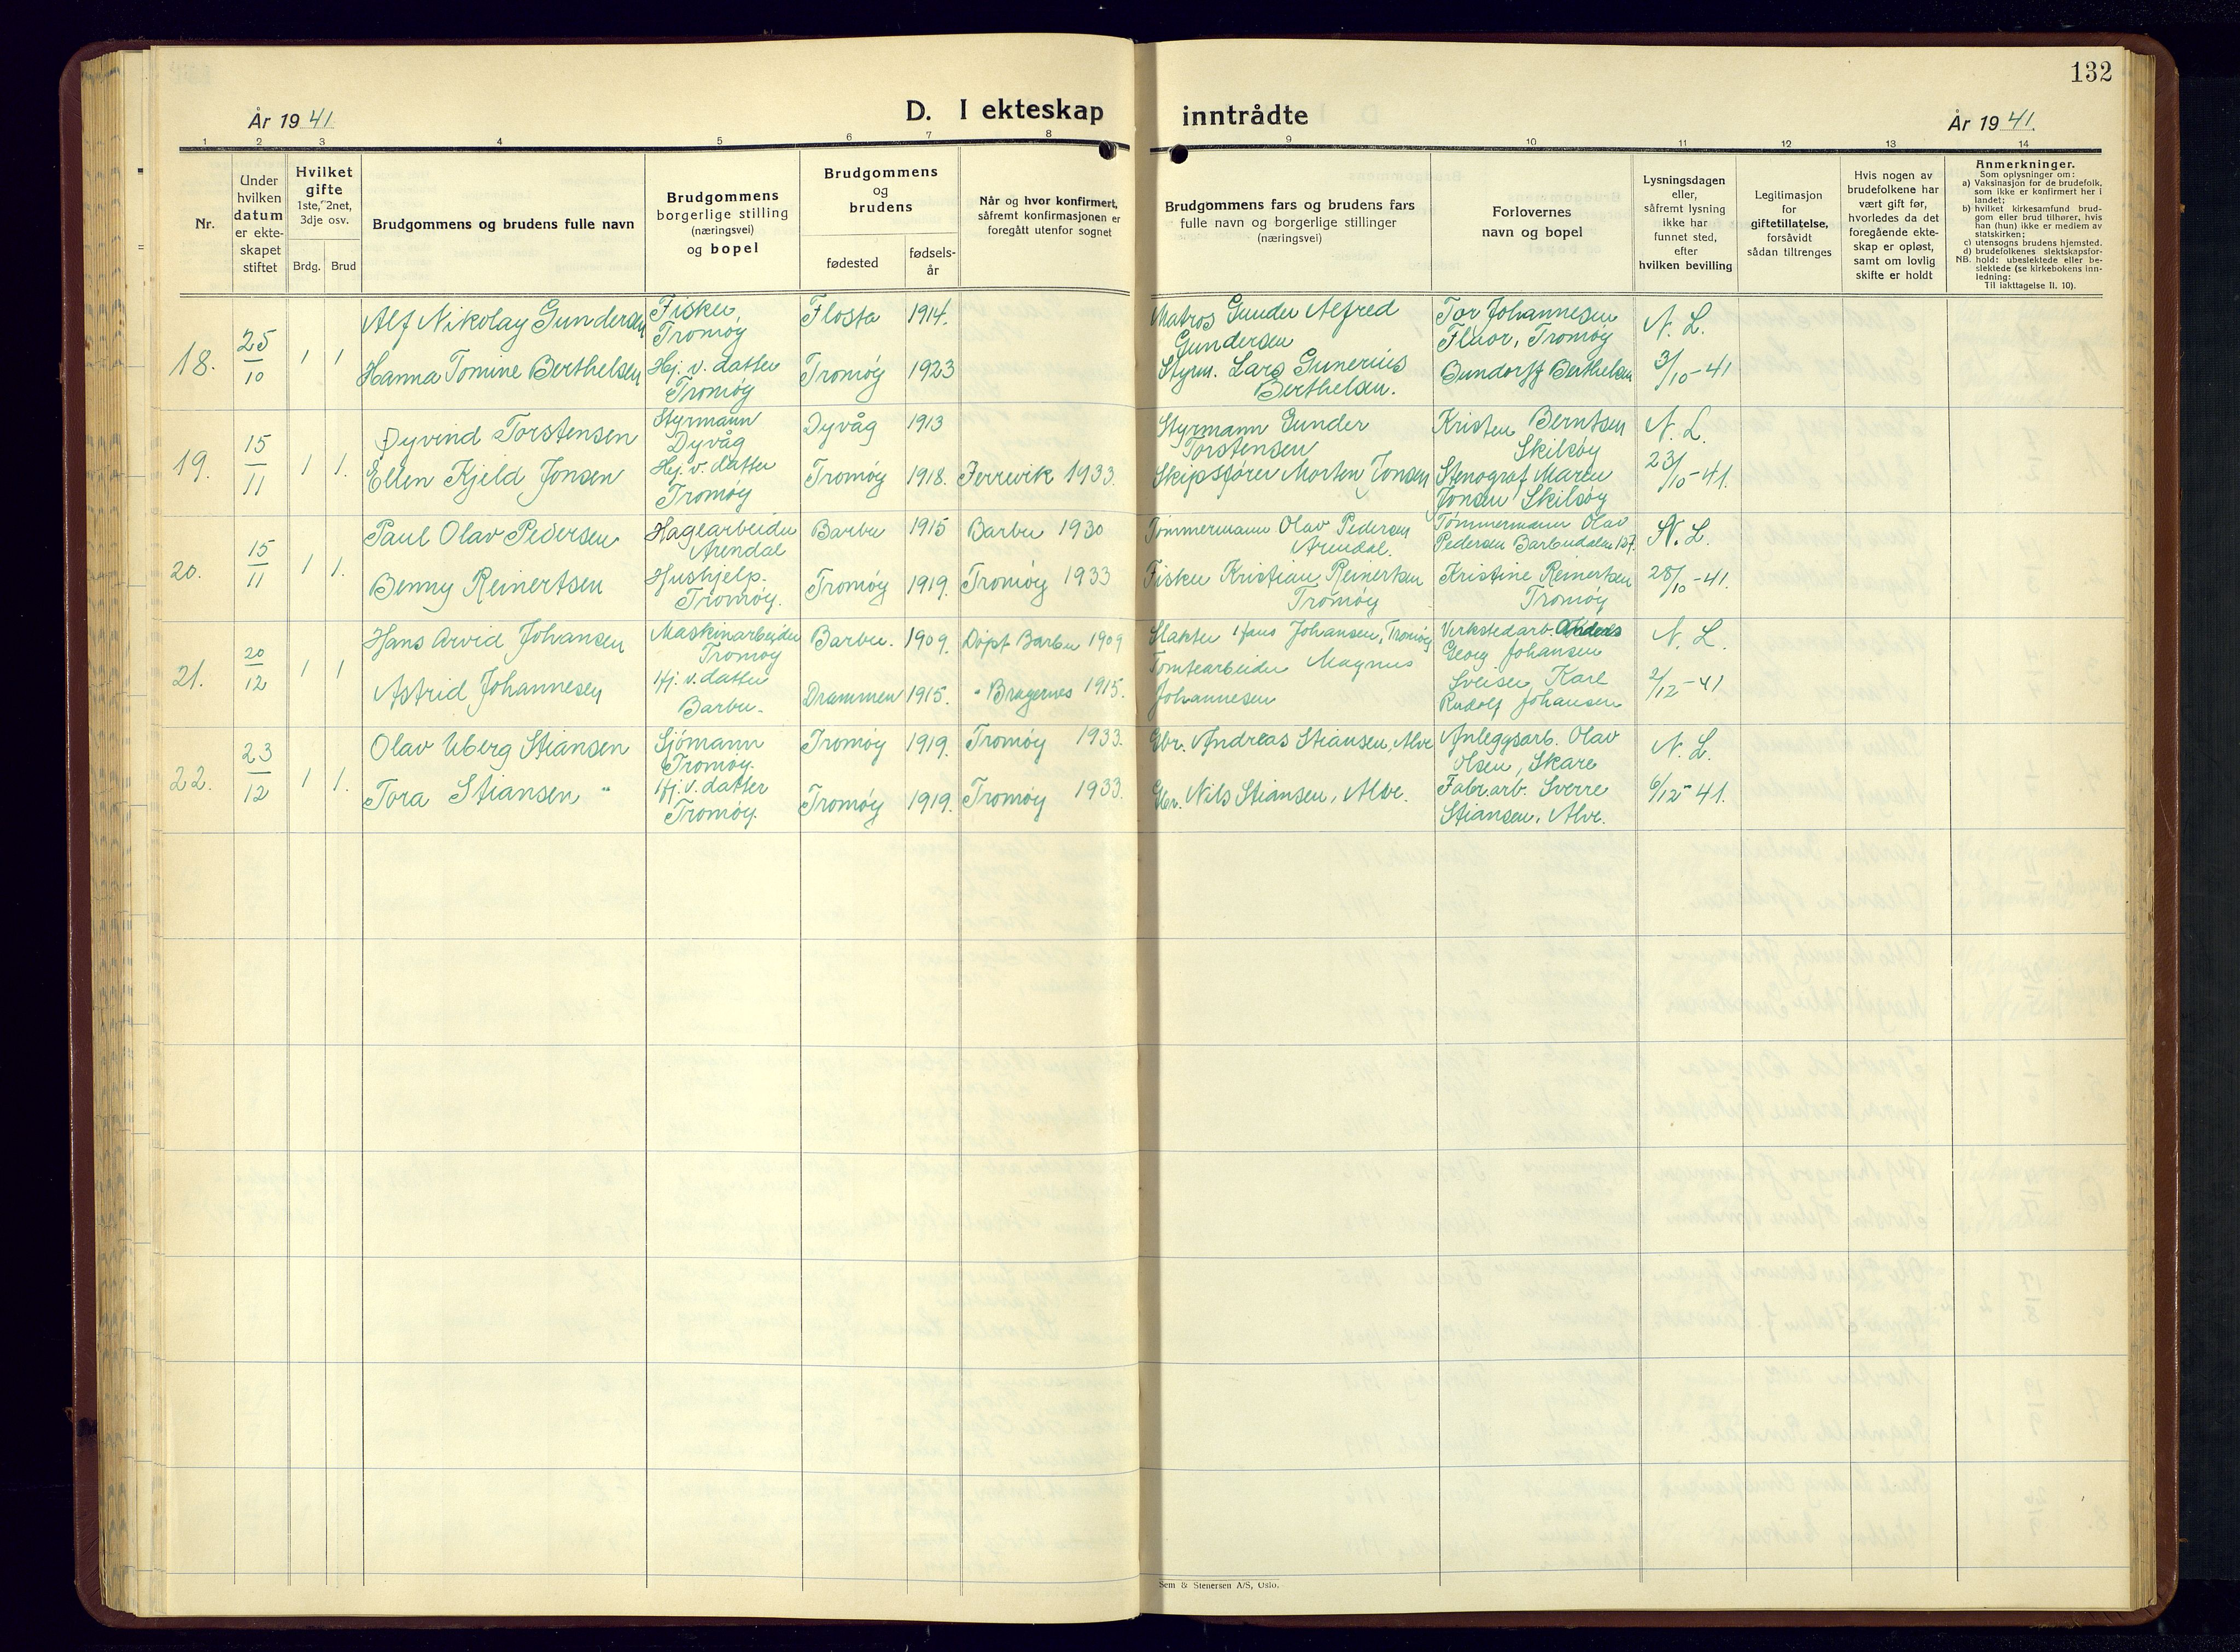 132
År 1941.
D. I ekteskap inntrådte
År 1941.
1 2 3 4 5 6 7 8 9 10 11 12 13 14
Nr.
Under hvilken datum er ekte-skapet stiftet
Hvilket gifte
1ste, 2net, 3dje osv.
Brdg. Brud
Brudgommens og brudens fulle navn
Brudgommens borgerlige stilling (næringsvei) og bopel
Brudgommens og brudens
fødested
fødsels-år
Når og hvor konfirmert, såfremt konfirmasjonen er foregått utenfor sognet
Brudgommens fars og brudens fars
fulle navn og borgerlige stillinger
(næringsvei)
Forlovernes
navn og bopel
Lysningsdagen
eller,
såfremt lysning
ikke har
funnet sted,
efter
hvilken bevilling
Legitimasjon
for
giftetillatelse,
forsåvidt
sådan tiltrenges
Hvis nogen av
brudefolkene har
vært gift før,
hvorledes da det
foregående ekte-
skap er opløst,
samt om lovlig
skifte er holdt
Anmerkninger.
Som oplysninger om:
a) Vaksinasjon for de brudefolk,
som ikke er konfirmert her i
landet;
b) hvilket kirkesamfund brud-
gom eller brud tilhører, hvis
han (hun) ikke er medlem av
statskirken;
c) utensogns brudens hjemsted.
d) brudefolkenes slektskapsfor-
NB. hold: ubeslektede eller be-
slektede (se kirkebokens inn-
ledning:
Til iakttagelse II. 10).
18. 25/10 1 1
Alf Nikolay Gundersen Fisker, Tromøy Flosta 1914. Matros Gunder Alfred Gundersen Tor Johannesen Fluor, Tromøy N. L.
Hanna Tomine Berthelsen Hj. v. datter Tromøy Tromøy 1923 Styrm. Lars Gunerius Berthelsen. Berthelsen 3/10-41
19. 15/11 1 1.
Øyvind Torstensen Styrmann Dyvåg Dyvåg 1913 Styrmann Gunder Torstensen Kristen Berntsen Skilsøy N. L.
Ellen Kjeld Jonsen Hj. v. datter Tromøy Tromøy 1918. 1933. Skipsfører Morten Jonsen Stenograf Maren Jonsen Skilsøy 23/10-41.
20. 15/11 1 1.
Paul Olav Pedersen Hagearbeider Arendal Barbu 1915 Barbu 1930 Tømmermann Olav Pedersen Arendal. Tømmermann Olav Pedersen Barbudalen 127. N. L.
Benny Reinertsen Hushjelp. Tromøy. Tromøy 1919. Tromøy 1933 Fisker Kristian Reinertsen Tromøy Kristine Reinertsen Tromøy 28/10-41.
21. 20/12 1 1
Hans Arvid Johansen Maskinarbeider Tromøy Barbu. 1909. Døpt Barbu 1909 Slakter Hans Johansen, Tromøy Verkstedarb. Anders Georg Johansen N. L.
Astrid Johannesen Hj. v. datter Barbu. Drammen 1915. " Bragernes 1915. Tomtearbeider Magnus Johannesen Sveiser Karl Rudolf Johansen 2/12-41
22. 23/12 1 1.
Olav Uberg Stiansen Sjømann Tromøy. Tromøy 1919. Tromøy 1933. Gbr. Andreas Stiansen, Alve Anleggsarb. Olav Olsen, Skare N. L.
Tora Stiansen " Hj. v. datter Tromøy. Tromøy 1919. Tromøy 1933. Gbr. Nils Stiansen, Alve. Fabr.arb. Sverre Stiansen, Alve. 6/12-41.
Sem & Stenersen A/S, Oslo.